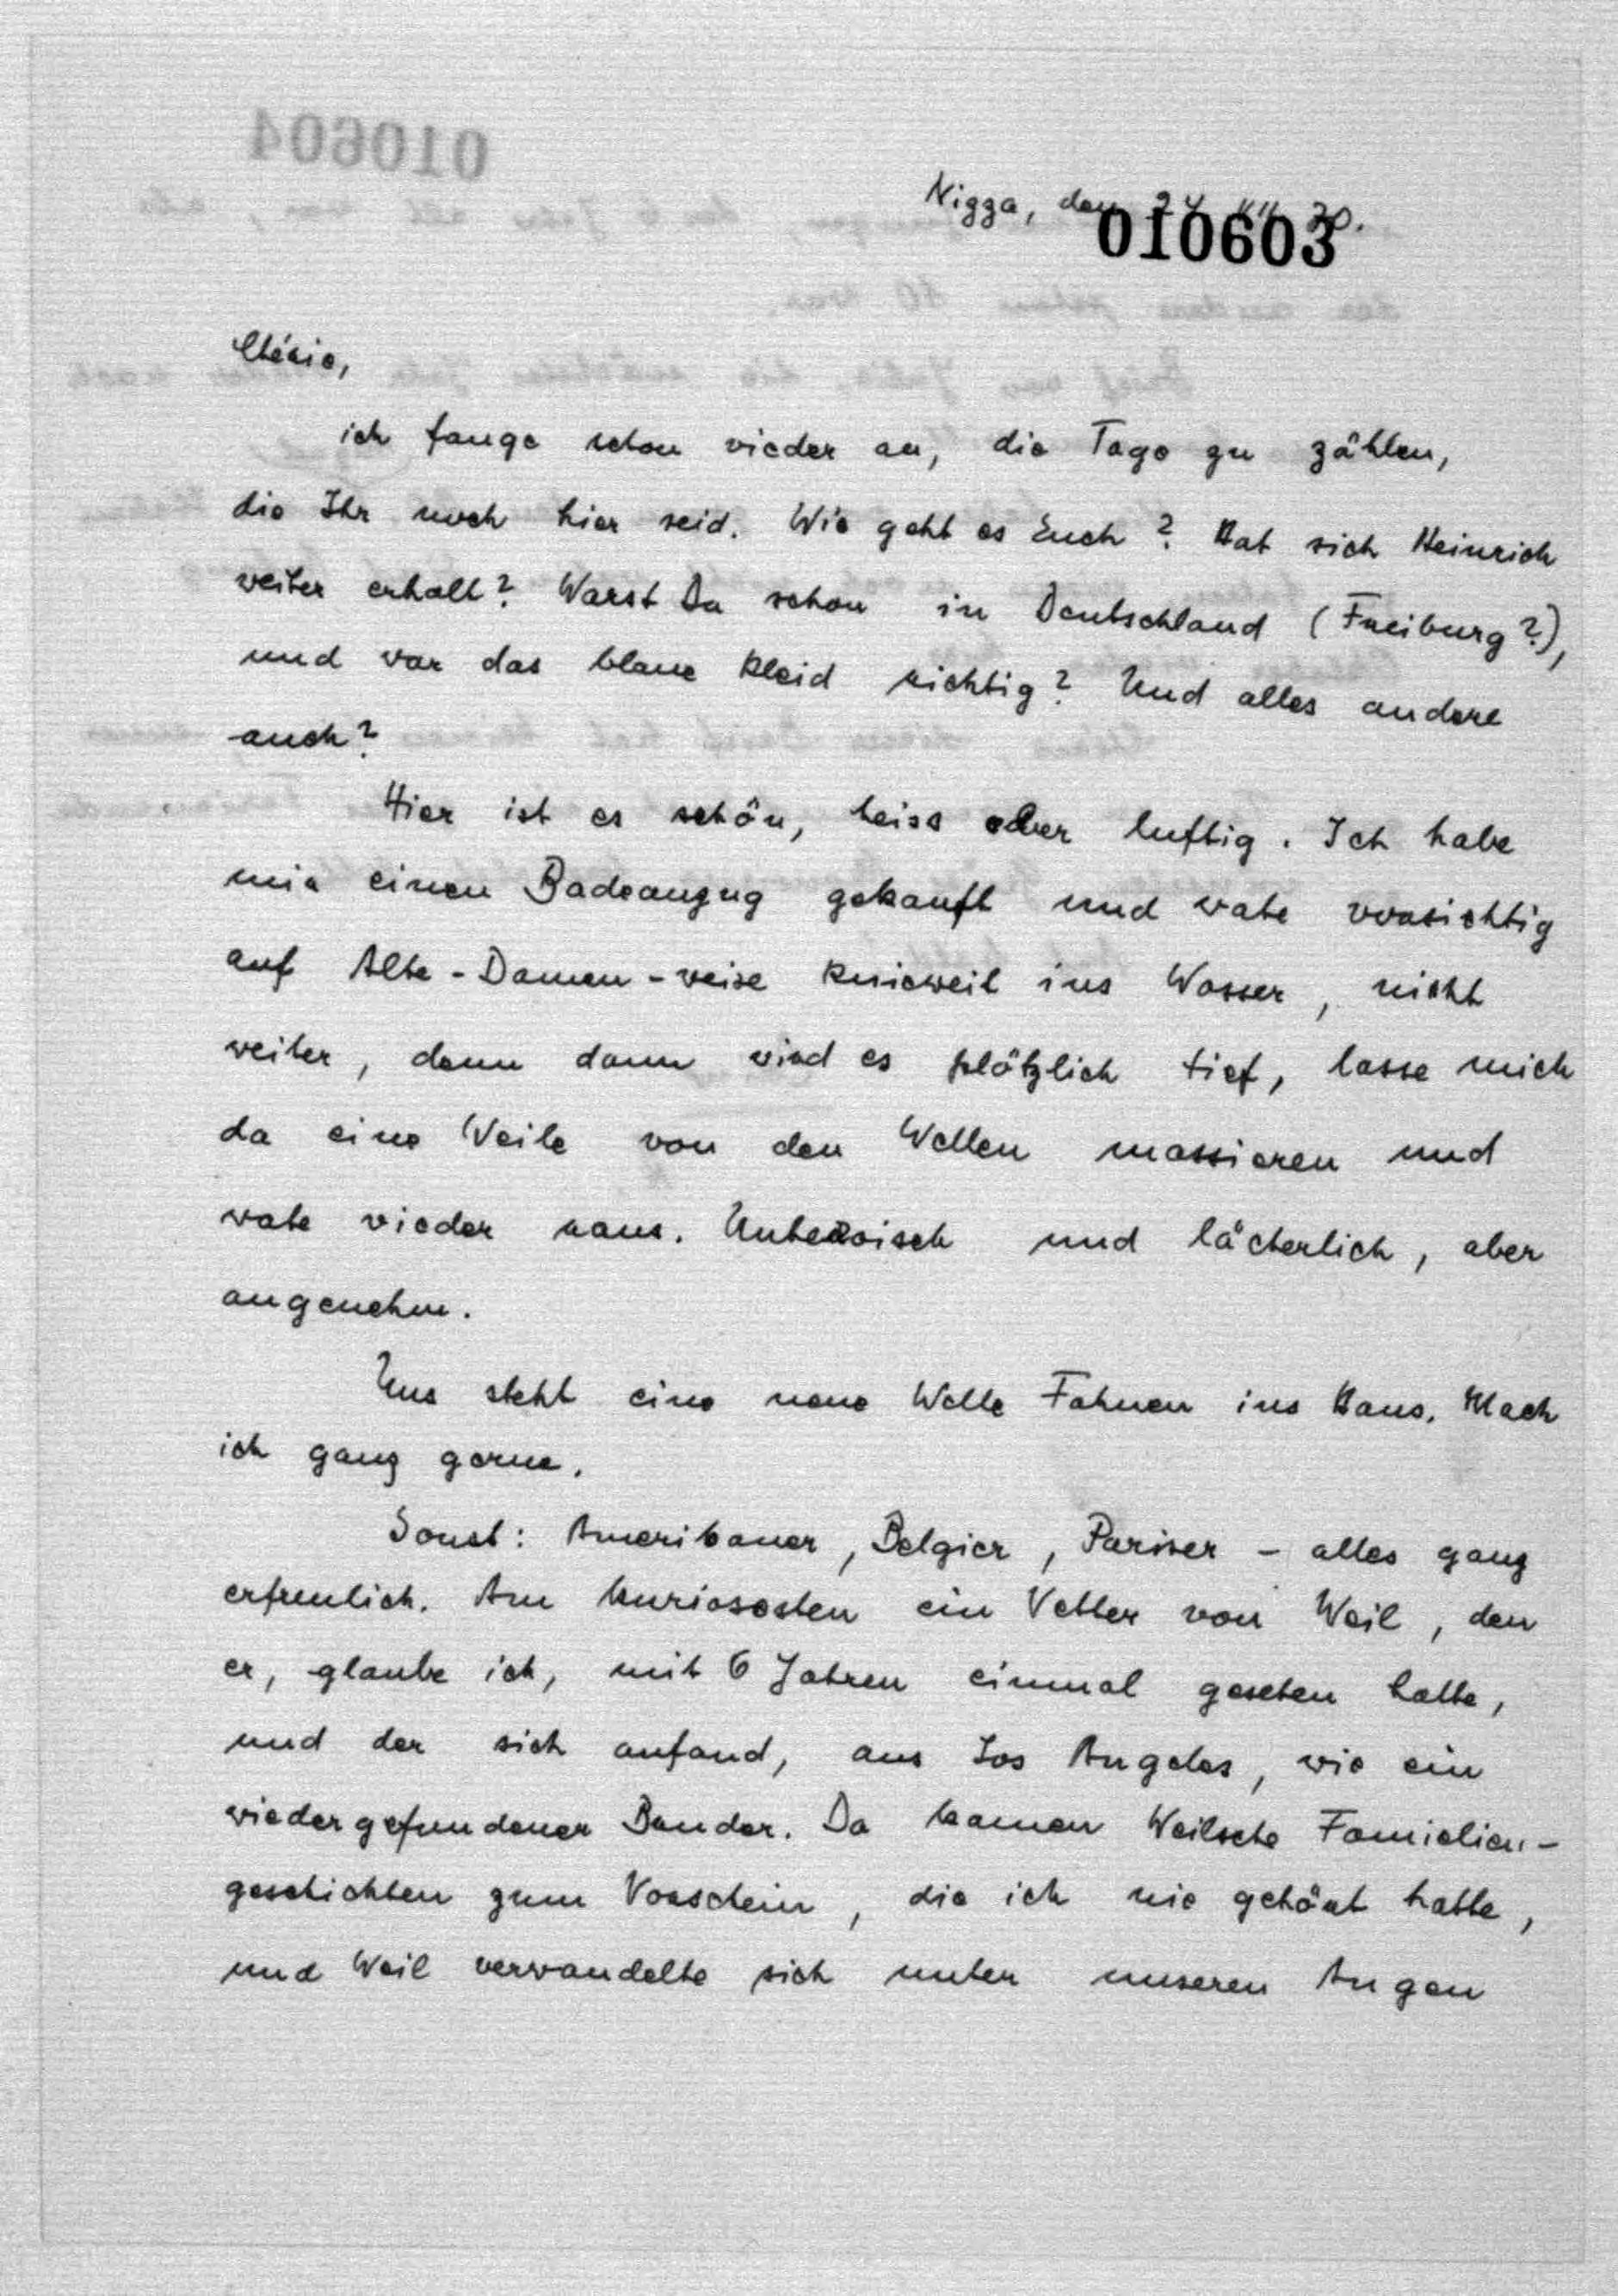 010604
Nizza, den
010603
Chérie,
ich fange schon wieder an, die Tage zu zählen,
die Ihr noch hier seid. Wie geht es Euch? Hat sich Heinrich
weiter erholt? Warst Du schon in Deutschland (Freiburg?),
und war das blaue Kleid richtig? Und alles andere
auch?
Hier ist es schön, heiss aber luftig. Ich habe
mir einen Badeanzug gekauft und wate vorsichtig
auf Alte-Damen-weise knieweit ins Wasser, nicht
weiter, denn dann wird es plötzlich tief, lasse mich
da eine Weile von den Wellen massieren und
wate wieder raus. Unheroisch und lächerlich, aber
angenehm.
Uns steht eine neue Welle Fahnen ins Haus. Mach
ich ganz gerne.
Sonst: Amerikaner, Belgier, Pariser - alles ganz
erfreulich. Am kuriosesten ein Vetter von Weil, den
er, glaube ich, mit 6 Jahren einmal gesehen hatte,
und der sich anfand, aus Los Angeles, wie ein
wiedergefundener Bruder. Da kamen Weilsche Familien-
geschichten zum Vorschein, die ich nie gehört hatte,
und Weil verwandelte sich unter unseren Augen